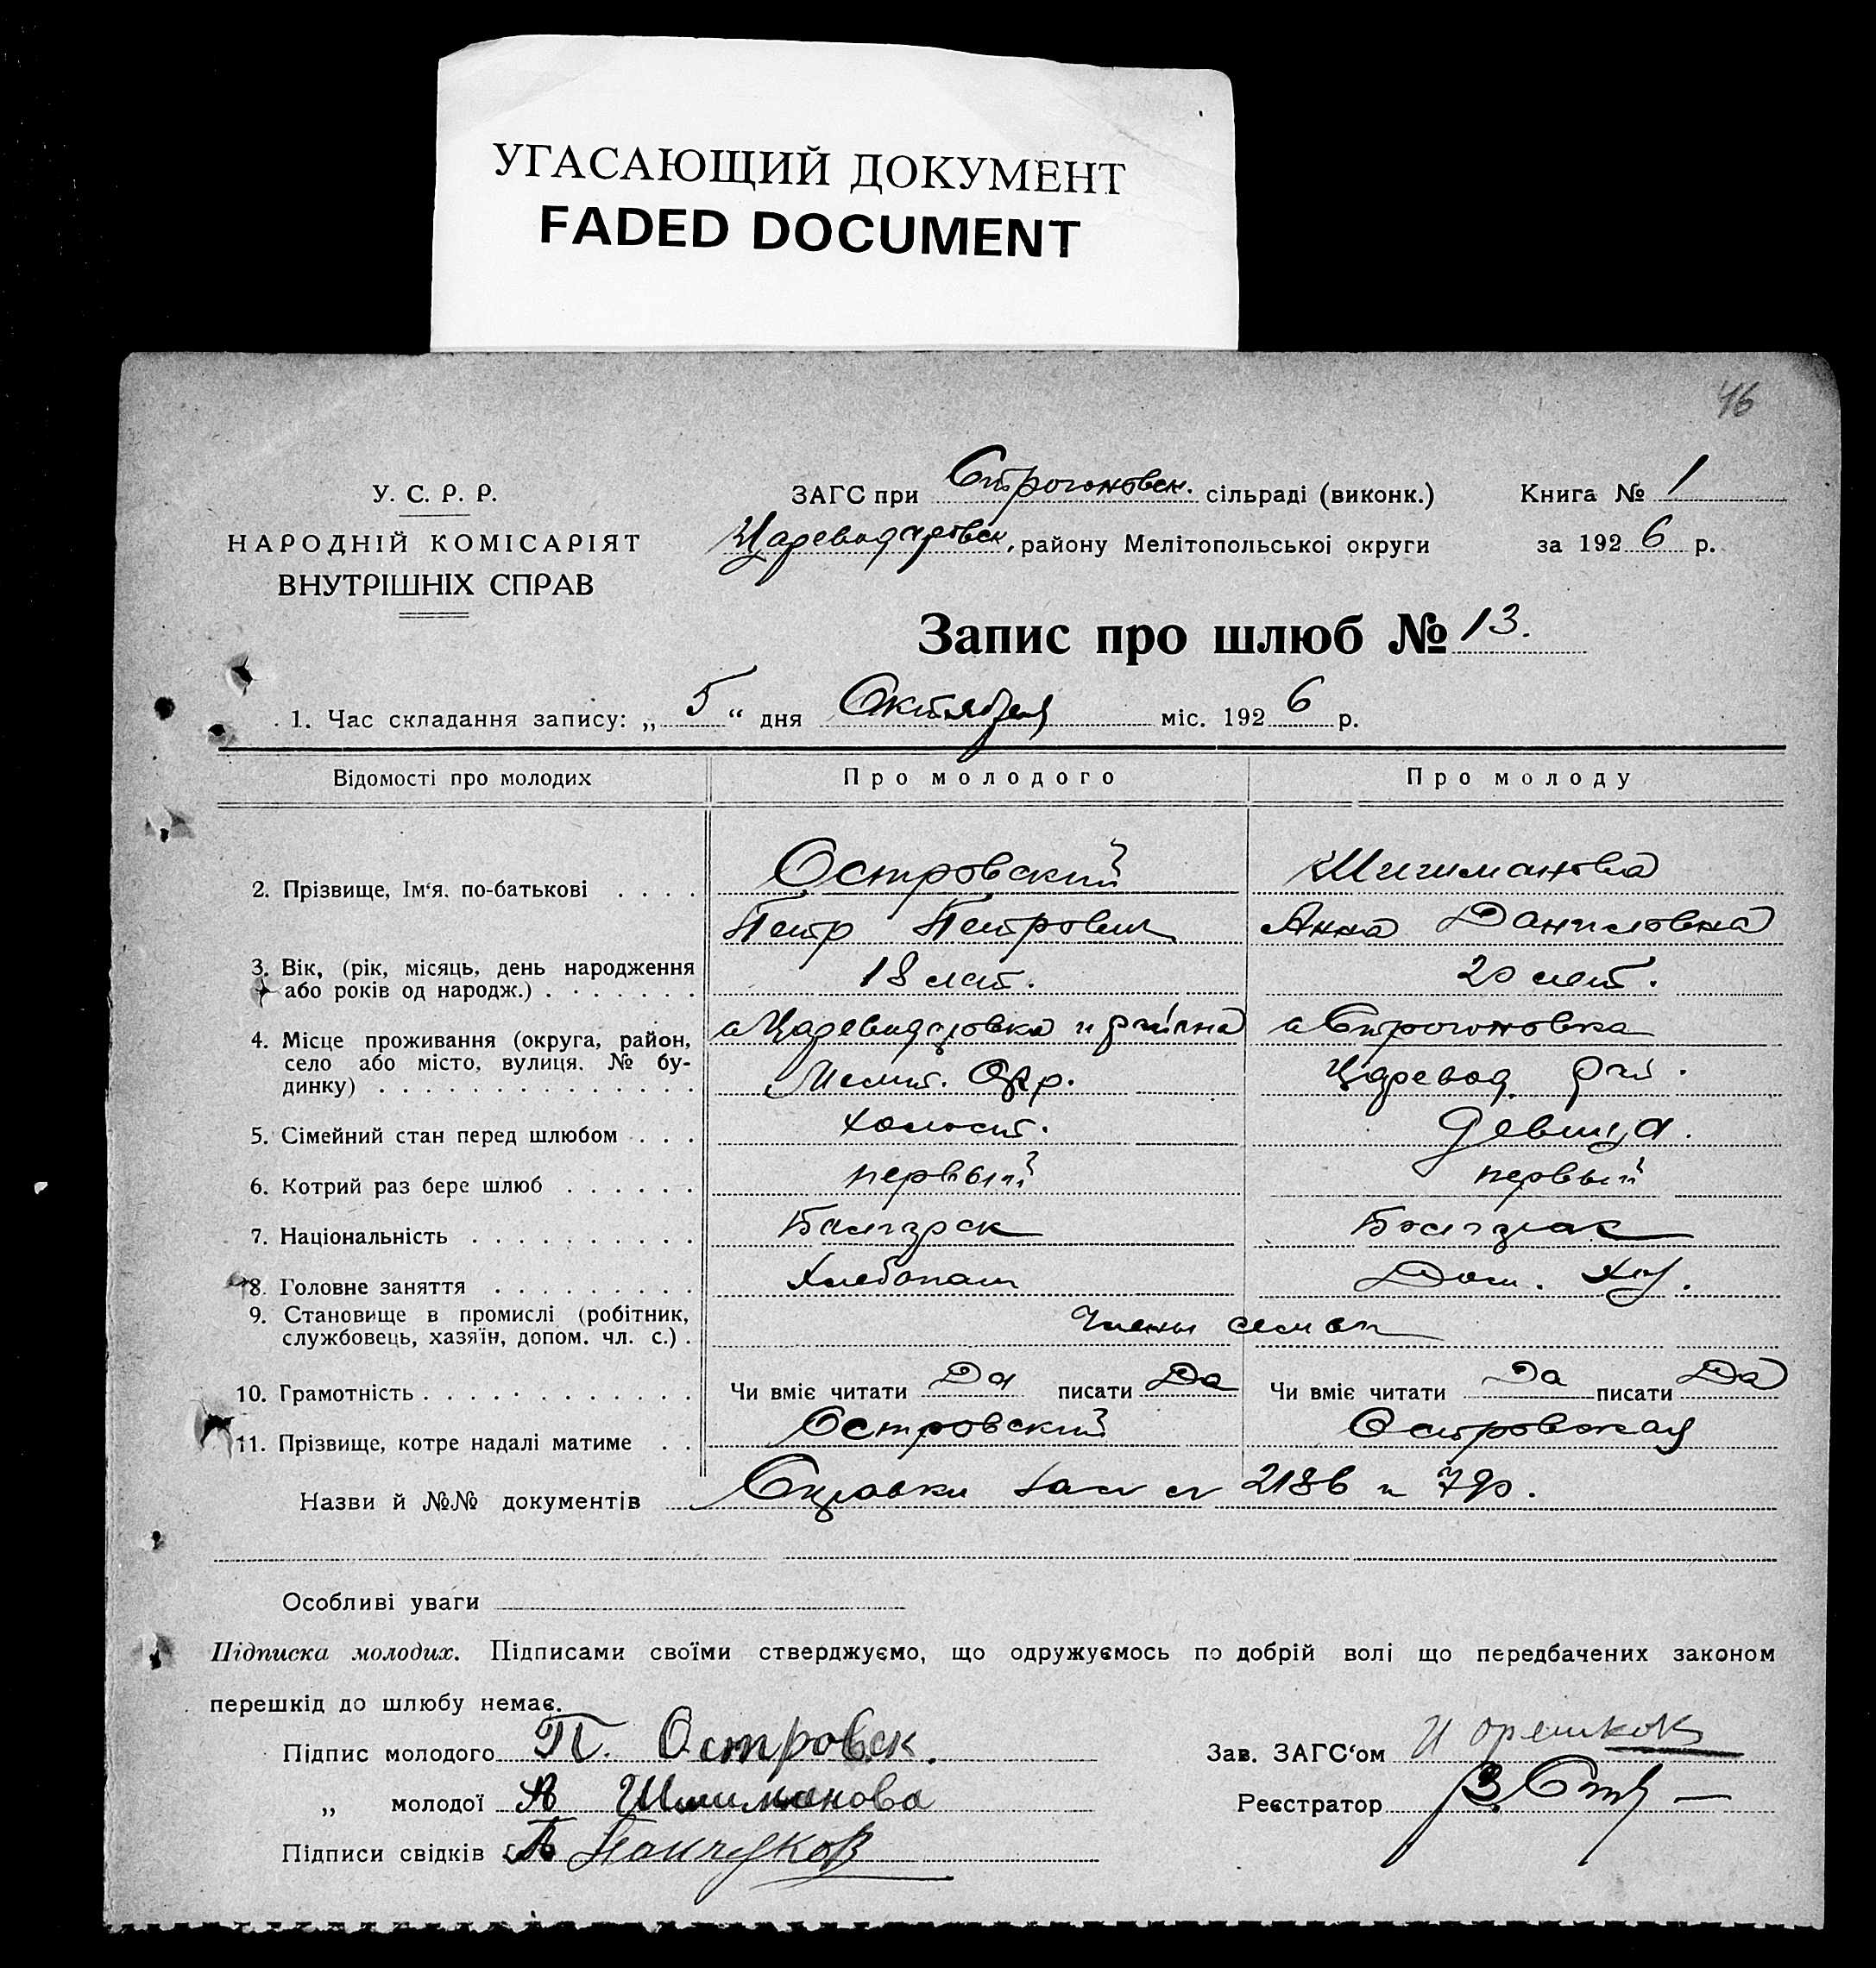 УГАСАЮЩИЙ ДОКУМЕНТ
FADED DOCUMENT
46
У. С. Р. Р.
НАРОДНІЙ КОМІСАРІЯТ
ВНУТРІШНІХ СПРАВ
ЗАГС при Строгоновск. сільраді (виконк.)
Царевод аровск, району Мелітопольської округи
Книга № 1
за 1926 р.
Запис про шлюб № 13.
1. Час складання запису: „ 5 “ дня Октября міс. 1926 р.
Відомості про молодих Про молодого Про молоду
2. Прізвище, Ім‘я, по-батькові . . . . Островский Шишманова
Петр Петрович Анна Даниловна
3. Вік, (рік, місяць, день народження або років од народж.) . . . . . . . 18 лет. 20 лет.
4. Місце проживання (округа, район, село або місто, вулиця, № будинку) . . . . . . . . . . . . . .
с Царевод ровка и района с Строгоновка
Мелит. Окр. Царевод. рай.
5. Сімейний стан перед шлюбом . . . холост. девица.
6. Котрий раз бере шлюб . . . . . . первый первый
7. Національність . . . . . . . . . . Болгарск Болгарск
8. Головне заняття . . . . . . . . . Хлебопаш Дом. Хоз.
9. Становище в промислі (робітник, службовець, хазяїн, допом. чл. с.) . Члены семьи
10. Грамотність . . . . . . . . . . . . Чи вміє читати Да писати Да Чи вміє читати Да писати Да
11. Прізвище, котре надалі матиме . . Островский Островская
Назви й №№ документів Справки 2186 и
Особливі уваги
Підписка молодих. Підписами своїми стверджуємо, що одружуємось по добрій волі що передбачених законом
перешкід до шлюбу немає.
Підпис молодого П. Островск.
„ молодої А Шишманова
Підписи свідків
Зав. ЗАГС‘ом
Реєстратор